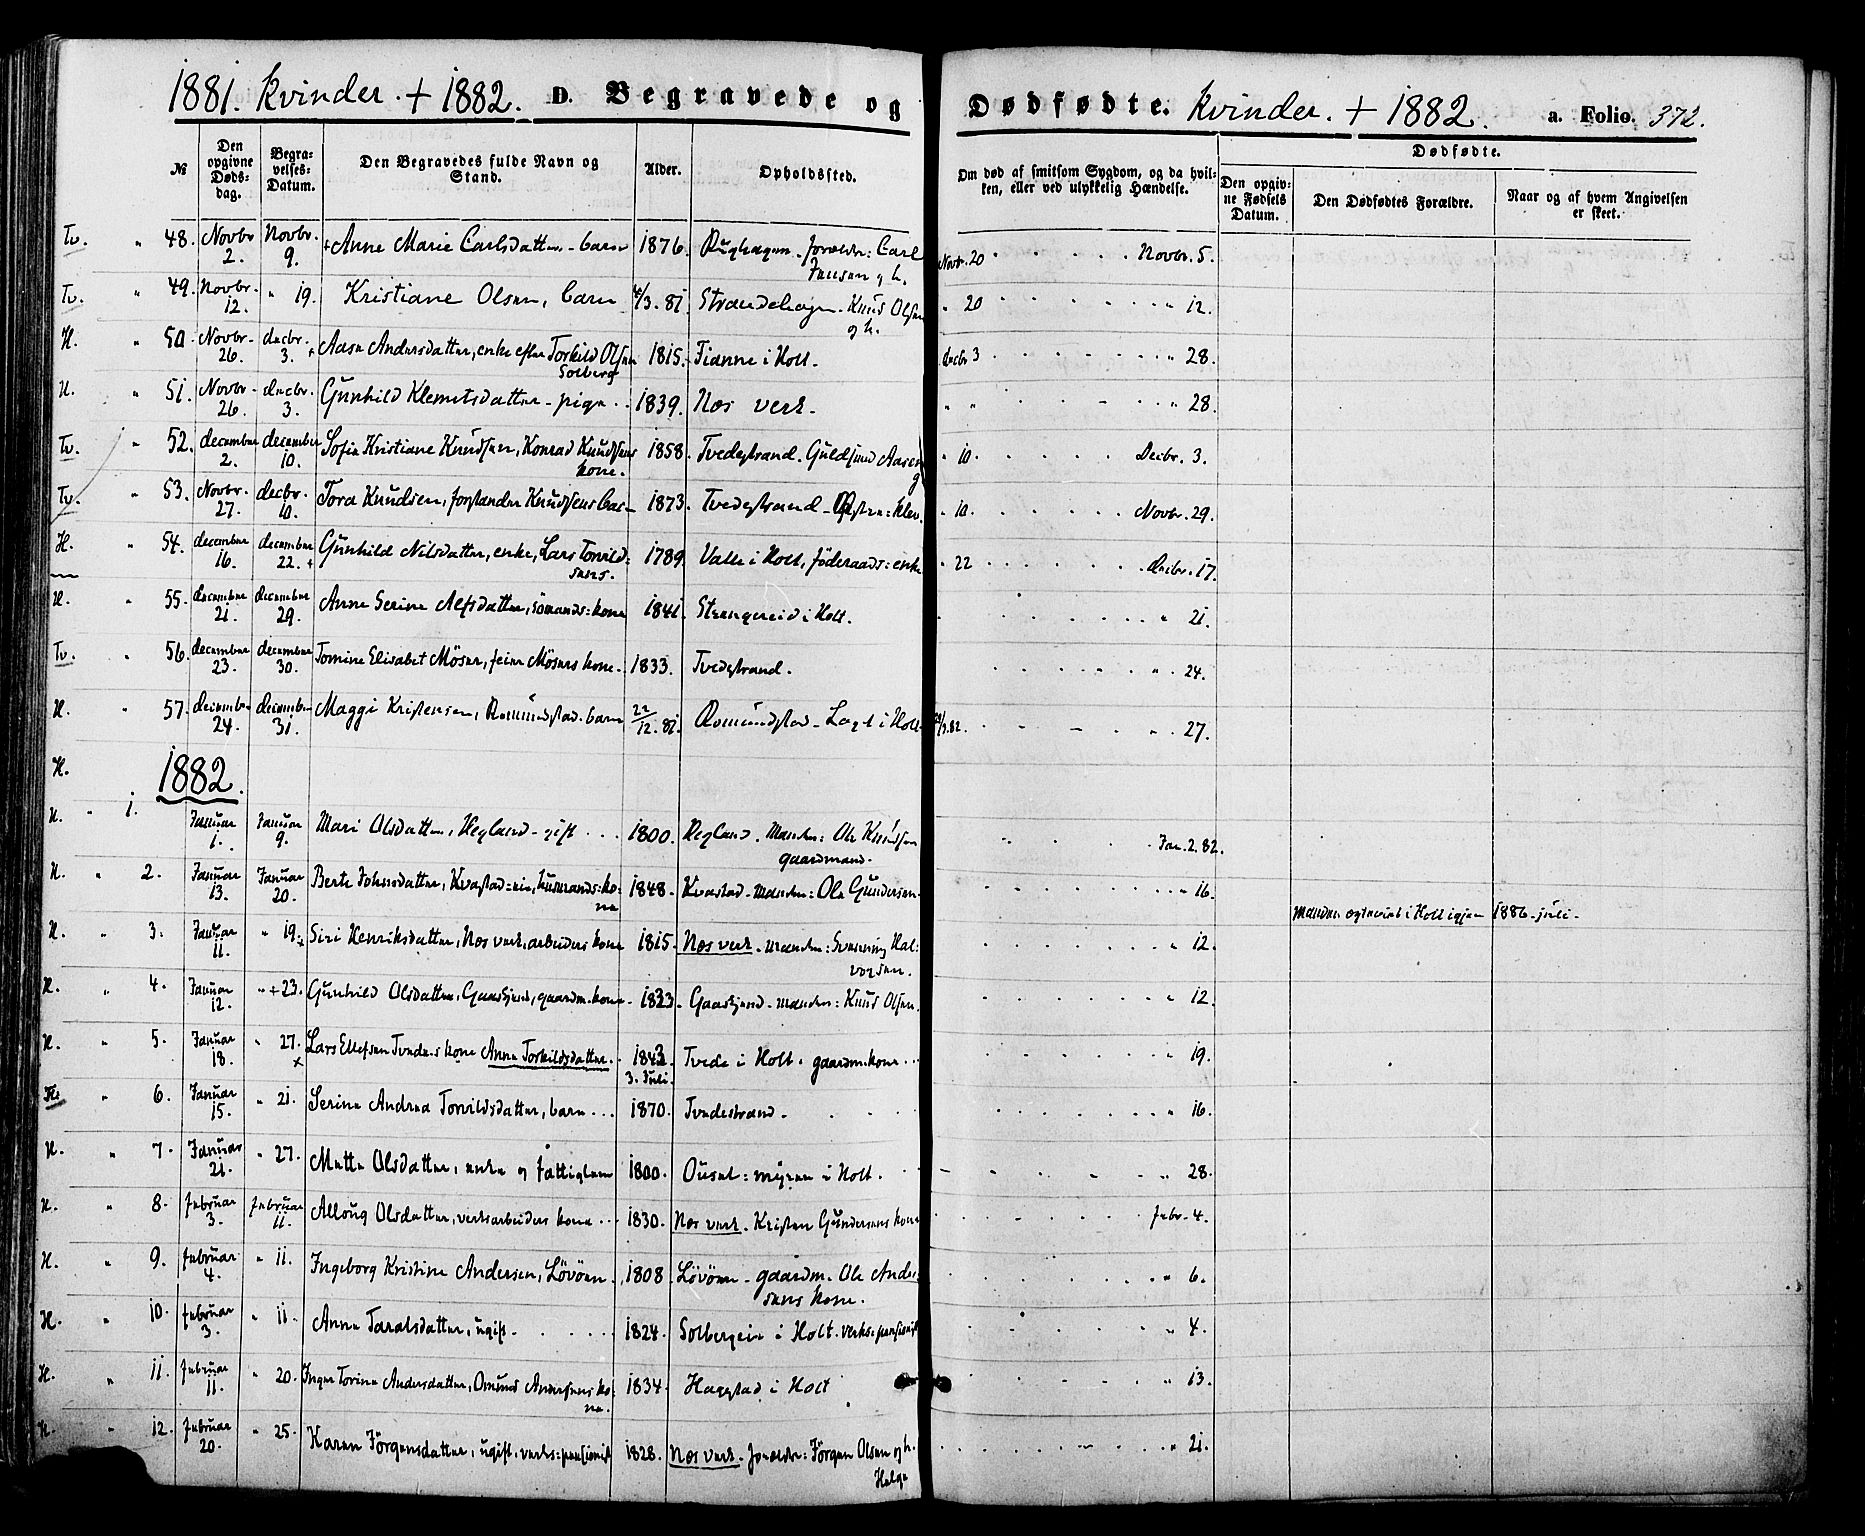 1881. Kvinder. + 1882. D. Begravede og Dødfødte. Kvinder. + 1882. a. Folio. 372.
Dødfødte.
№ Den opgivne Døds-dag. Begra-velses-Datum. Den Begravedes fulde Navn og Stand. Alder. Opholdssted. Om død af smitsom Sygdom, og da hvil-ken, eller ved ulykkelig Hændelse. Den opgiv-ne Fødsels Datum. Den Dødfødtes Forældre. Naar og af hvem Angivelsen er skeet.
Tv. " 48. Novbr 2. Novbr. 9. + Anne Marie Carlsdatter - barn 1876. forældr: Carl Jensen og h. Novbr. 20 Novbr. 5.
Tv. " 49. Novbr. 12. " 19. Kristiane Olsen, barn 4/3. 81. Strandehagen. Knud Olsen og h. " 20 " 12.
H. " 50. Novbr. 26. decbr. 3. + Aase Andersdatter, enke efter Torkild Olsen Solberg 1815. Fianne i Holt. decbr 3 " 28.
H. " 51. Novbr. 26. decbr. 3. Gunhild Klemetsdatter - pige 1839. Næs verk. " " " 28.
Tv. " 52. december 2. december 10. Sofie Kristiane Knudsen, Konrad Knudsens kone. 1858. Tvedestrand. Guldsmed Aasen " 10. Decbr. 3.
Tv. " 53. Novbr. 27. decbr. 10. Tora Knudsen, forstander Knudsens barn 1873. Tvedestrand - " 10. Novbr. 29.
H. " 54. december 16. december 22. + Gunhild Nilsdatter, enke, Lars Torvild=sens. 1789 Valle i Holt, föderaads=enke " 22 decbr. 17.
H. " 55. december 21. december 29. Anne Serine Alfsdatter, sömands=kone 1841. Strengereid i Holt. " 21.
Tv. " 56. december 23. december 30. Tomine Elisabet Möser, feier Mösers kone. 1833. Tvedestrand. " 24.
H. " 57. december 24. december 31. Maggi Kristensen, Romundstad. barn 22/12. 81. Romundstad - Laget i Holt " 27.
H. 1882.
H. " 1. Januar 1. Januar 9. Mari Olsdatter, Hegland - gift 1800. Hegland. Manden: Ole Knudsen gaardmand. Jan. 2. 82.
H. " 2. Januar 13. Januar 20. Berte Johnsdatter, Kvastad=eie, husmands=kone 1848. Kvastad - Manden: Ole Gundersen. " 16.
Manden egteviet i Holt igjen 1886 - juli -
H. " 3. Januar 11. " 19. + Siri Henriksdatter, Næs verk, arbeiders kone 1815. Næs verk. manden: Svenning Hal=vorsen. " 12.
H. " 4. Januar 12. " + 23. Gunhild Olsdatter, gaardm. kone 1823. manden: Knud Olsen. " 12.
H. " 5. Januar 18. " 27. x Lars Ellefsen Tvedes kone Anne Torkildsdatter. 1843. 3. Juli. Tvede i Holt. gaardm. kone " 19.
" 6. Januar 15. " 21. Serine Andrea Torvildsdatter, barn 1870. Tvedestrand. " 16.
H. " 7. Januar 21. " 27. Mette Olsdatter, enke og fattiglem 1800. Ousel=myren i Holt. " 28.
H. " 8. Februar 3. Februar 11. Alloug Olsdatter, verksarbeiders kone 1830. Næs verk. Kristen Gundersens kone Febr. 4.
H. " 9. Februar 4. " 11. Ingeborg Kristine Andersen, Lövöen. 1808. Lövöen - gaardm. Ole Ander=sens kone. " 6.
H. " 10. Februar 3. " 11. Anne Taralsdatter, ugift. 1824. Solbergeie i Holt. verks=pensionist " 4.
H. " 11. Februar 11. " 20. Inger Torine Andersdatter, Omund Andersens kone. 1834. Haegstad i Holt " 13.
H. " 12. Februar 20. " 25. Karen Jörgensdatter, ugift, verks=pensionist 1828. Næs verk. Forældre: Jörgen Olsen og h. Helge " 21.